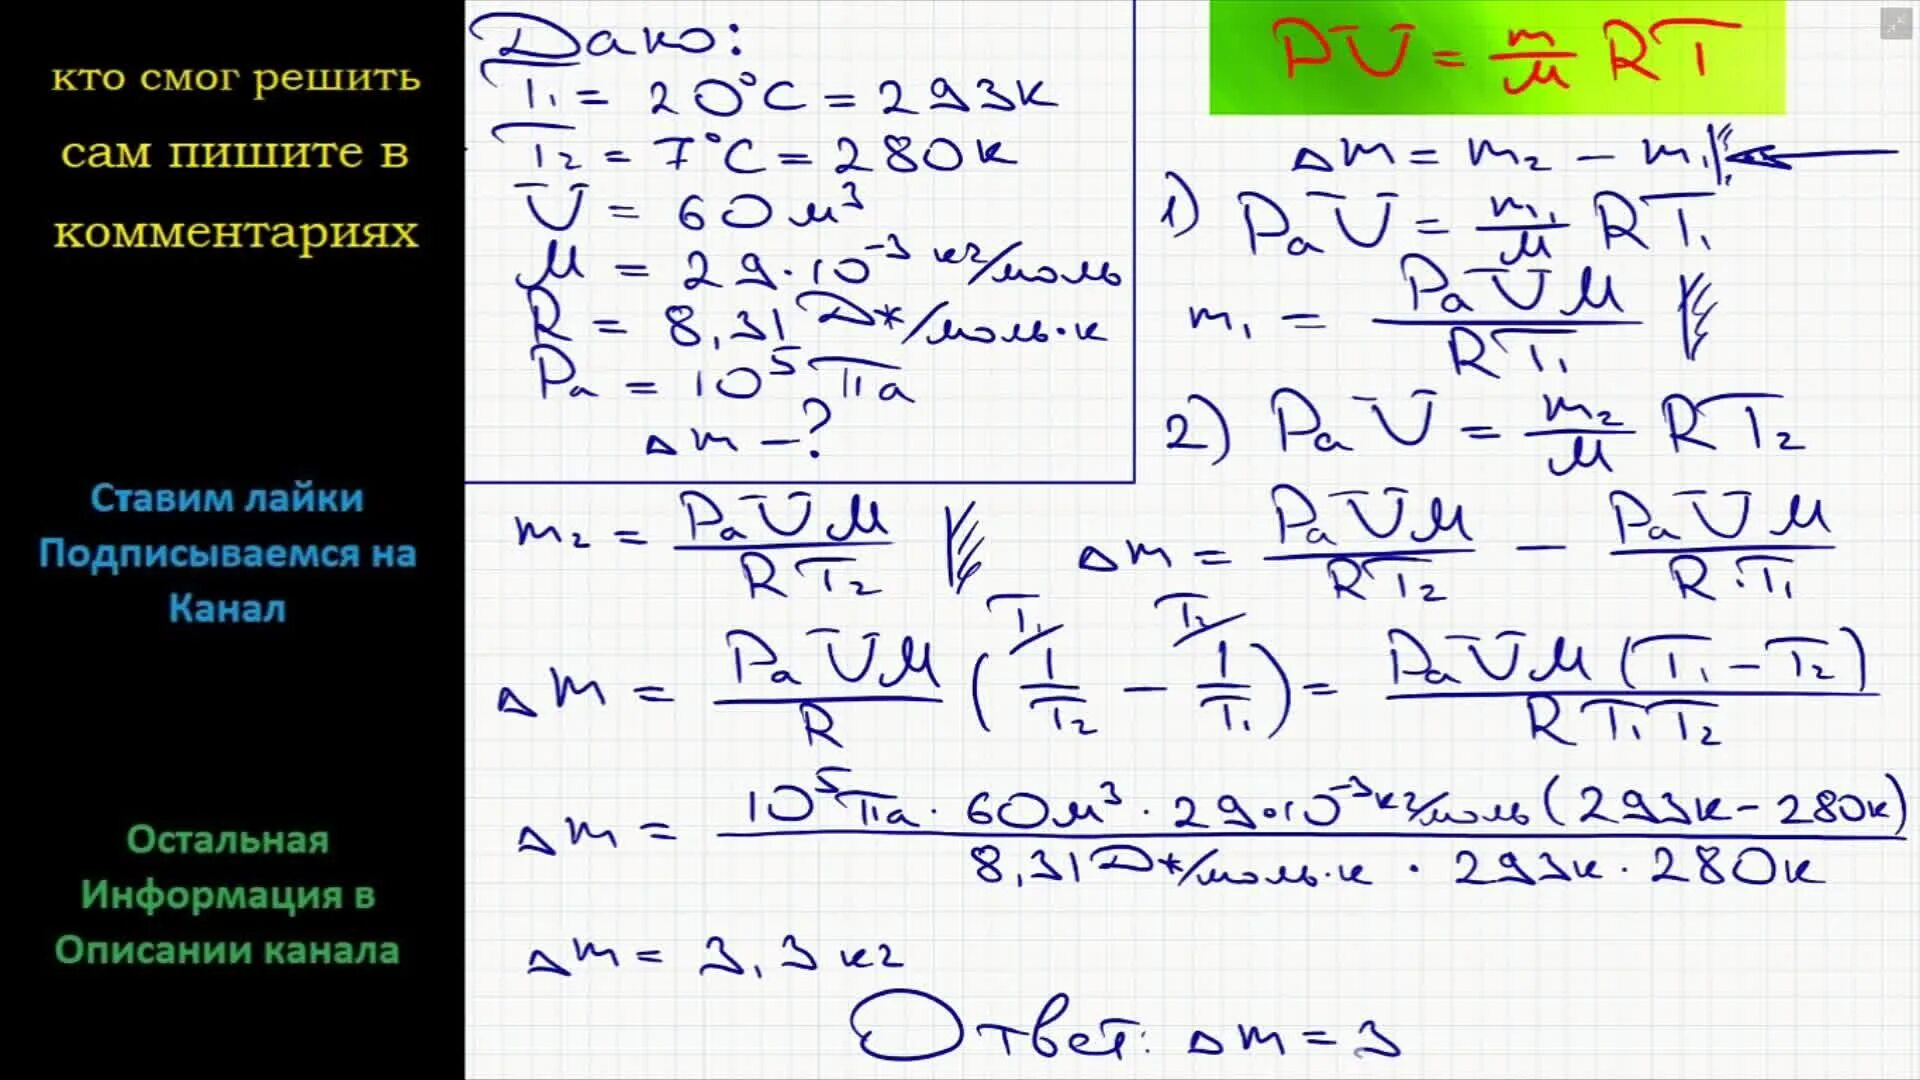 кто смог решить
сам пишите в
комментариях
Ставим лайки
Подписываемся на
Канал
Остальная
Информация в
Описании канала
Дано:
T₁ = 20°C = 293к
T₂ = 7°C = 280к
V = 60 м³
M = 29·10⁻³ кг/моль
R = 8,31 Дж/моль·к
Pa = 10⁵ Па
Δm – ?
PV = m/M RT
Δm = m₂ – m₁
1) PaV = m₁/M RT₁
m₁ = PaVM/RT₁
2) PaV = m₂/M RT₂
m₂ = PaVM/RT₂
Δm = PaVM/RT₂ – PaVM/R·T₁
Δm = PaVM/R (T₁/ 1/T₂ – T₂/ 1/T₁) = PaVM(T₁–T₂)/RT₁T₂
Δm = 10⁵Па · 60м³ · 29·10⁻³кг/моль (293к – 280к) / 8,31Дж/моль·к · 293к · 280к
Δm = 3,3 кг
Ответ: Δm = 3